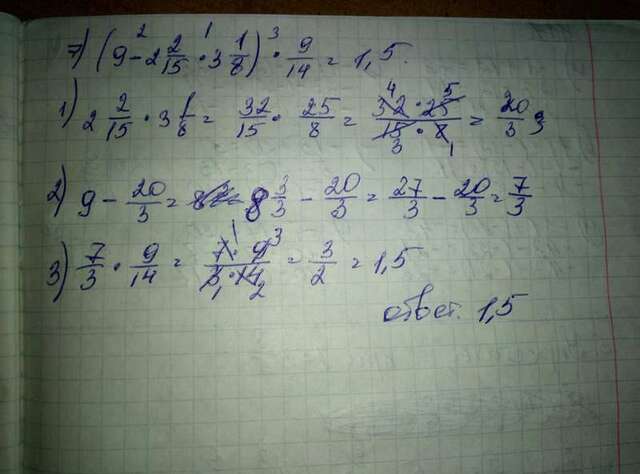 7) (9 - 2 2/15 · 3 1/8) · 9/14 = 1,5.
1) 2 2/15 · 3 1/8 = 32/15 · 25/8 = 32 · 25/15 · 8 = 20/3;
2) 9 - 20/3 = 8 3/3 - 20/3 = 27/3 - 20/3 = 7/3
3) 7/3 · 9/14 = 7 · 9/3 · 14 = 3/2 = 1,5
ответ. 1,5